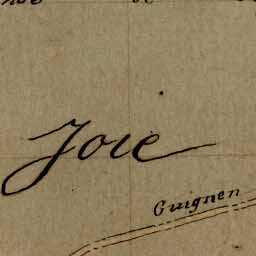 Joie
Guignen